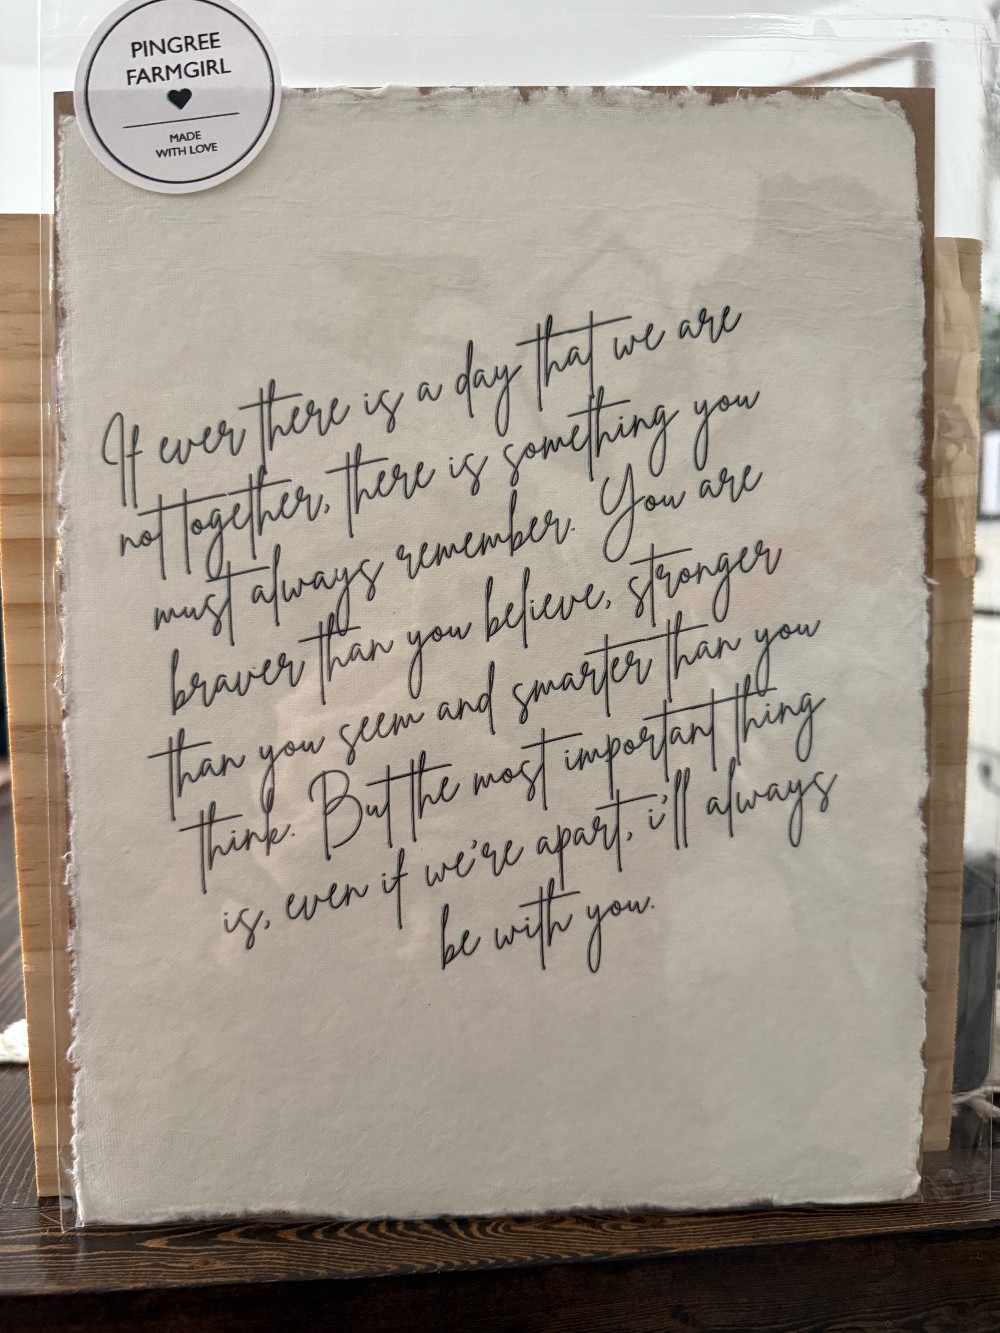 PINGREE
FARMGIRL
MADE
WITH LOVE
If ever there is a day that we are
not together, there is something you
must always remember. You are
braver than you believe, stronger
than you seem and smarter than you
think. But the most important thing
is, even if we're apart, i'll always
be with you.